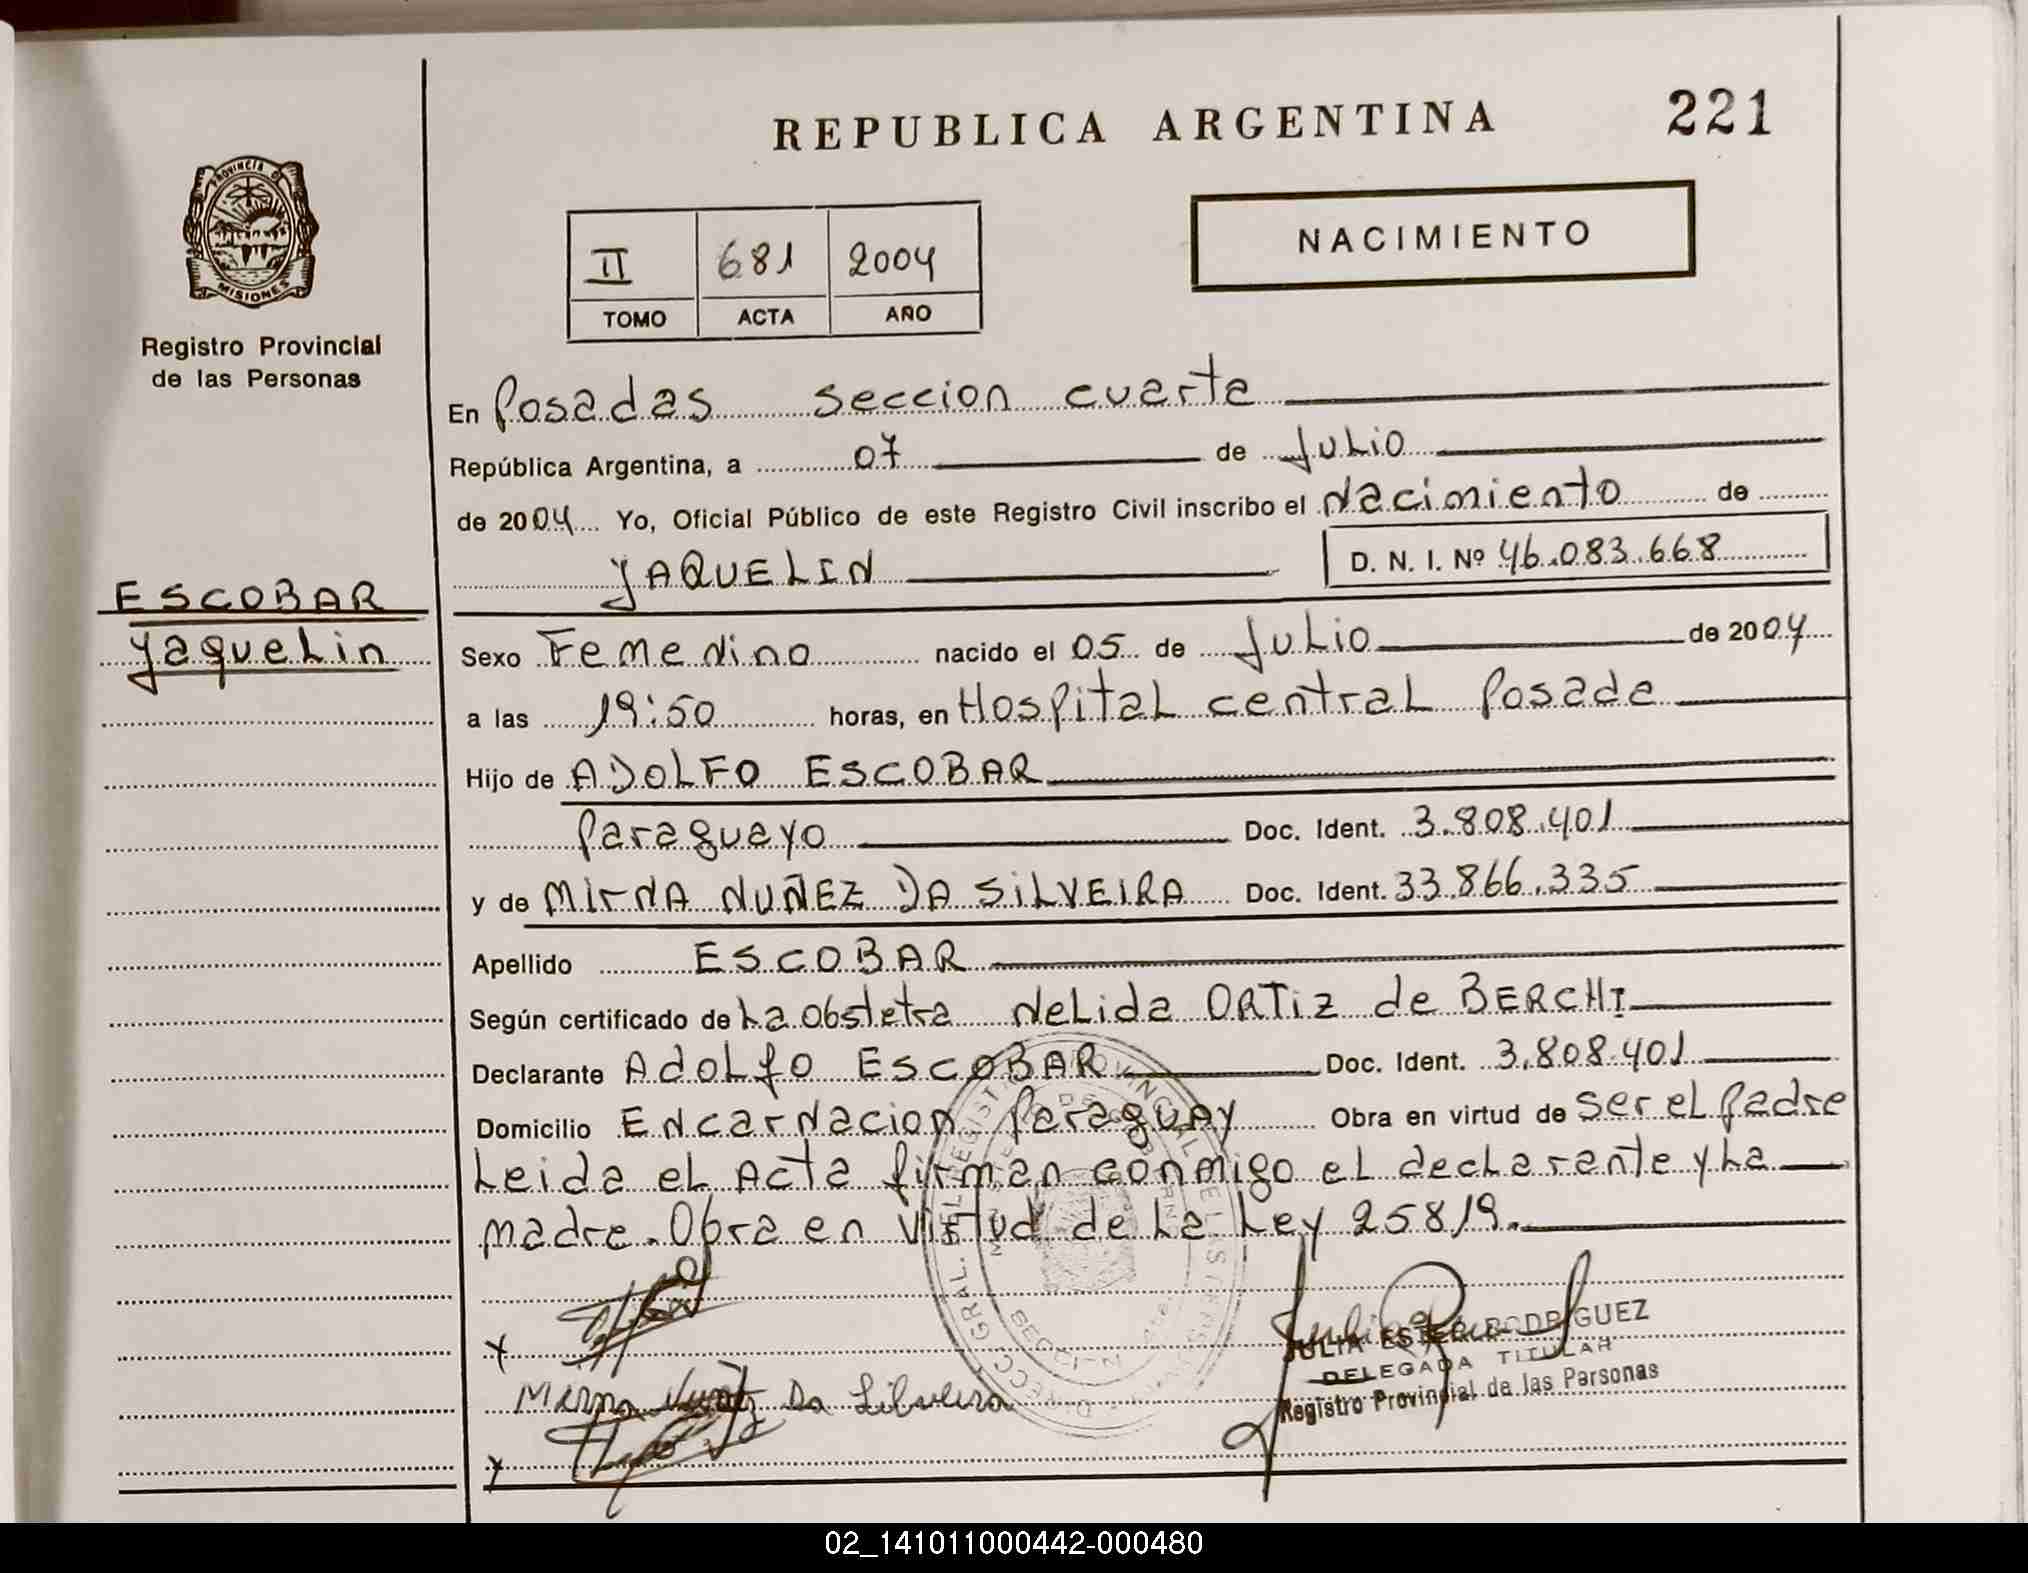 REPUBLICA ARGENTINA
221
PROVINCIA D
MISIONES
Registro Provincial
de las Personas
II 681 2004
TOMO ACTA AÑO
NACIMIENTO
En Posadas seccion cuarta
República Argentina, a 07 de Julio
de 2004 Yo, Oficial Público de este Registro Civil inscribo el Nacimiento de
YAQUELIN
D. N. I. Nº 46.083.668
ESCOBAR
Yaquelin
Sexo Femenino nacido el 05 de Julio de 2004
a las 19:50 horas, en Hospital central Posada
Hijo de ADOLFO ESCOBAR
Paraguayo Doc. Ident. 3.808.401
y de MirNA NUÑEZ DA SiLVEIRA Doc. Ident. 33.866.335
Apellido ESCOBAR
Según certificado de La Obstetra NeLida ORTiZ de BERCHI
Declarante AdoLfo ESCOBAR Doc. Ident. 3.808.401
Domicilio ENcarNacion Paraguay Obra en virtud de ser el Padre
Leida el Acta firman conmigo el declarante y La
madre. Obra en Virtud de La Ley 25819.
Mirna Nuñez Da Silveira
JULIA ESTER RODRIGUEZ
DELEGADA TITULAR
Registro Provincial de las Personas
02_141011000442-000480